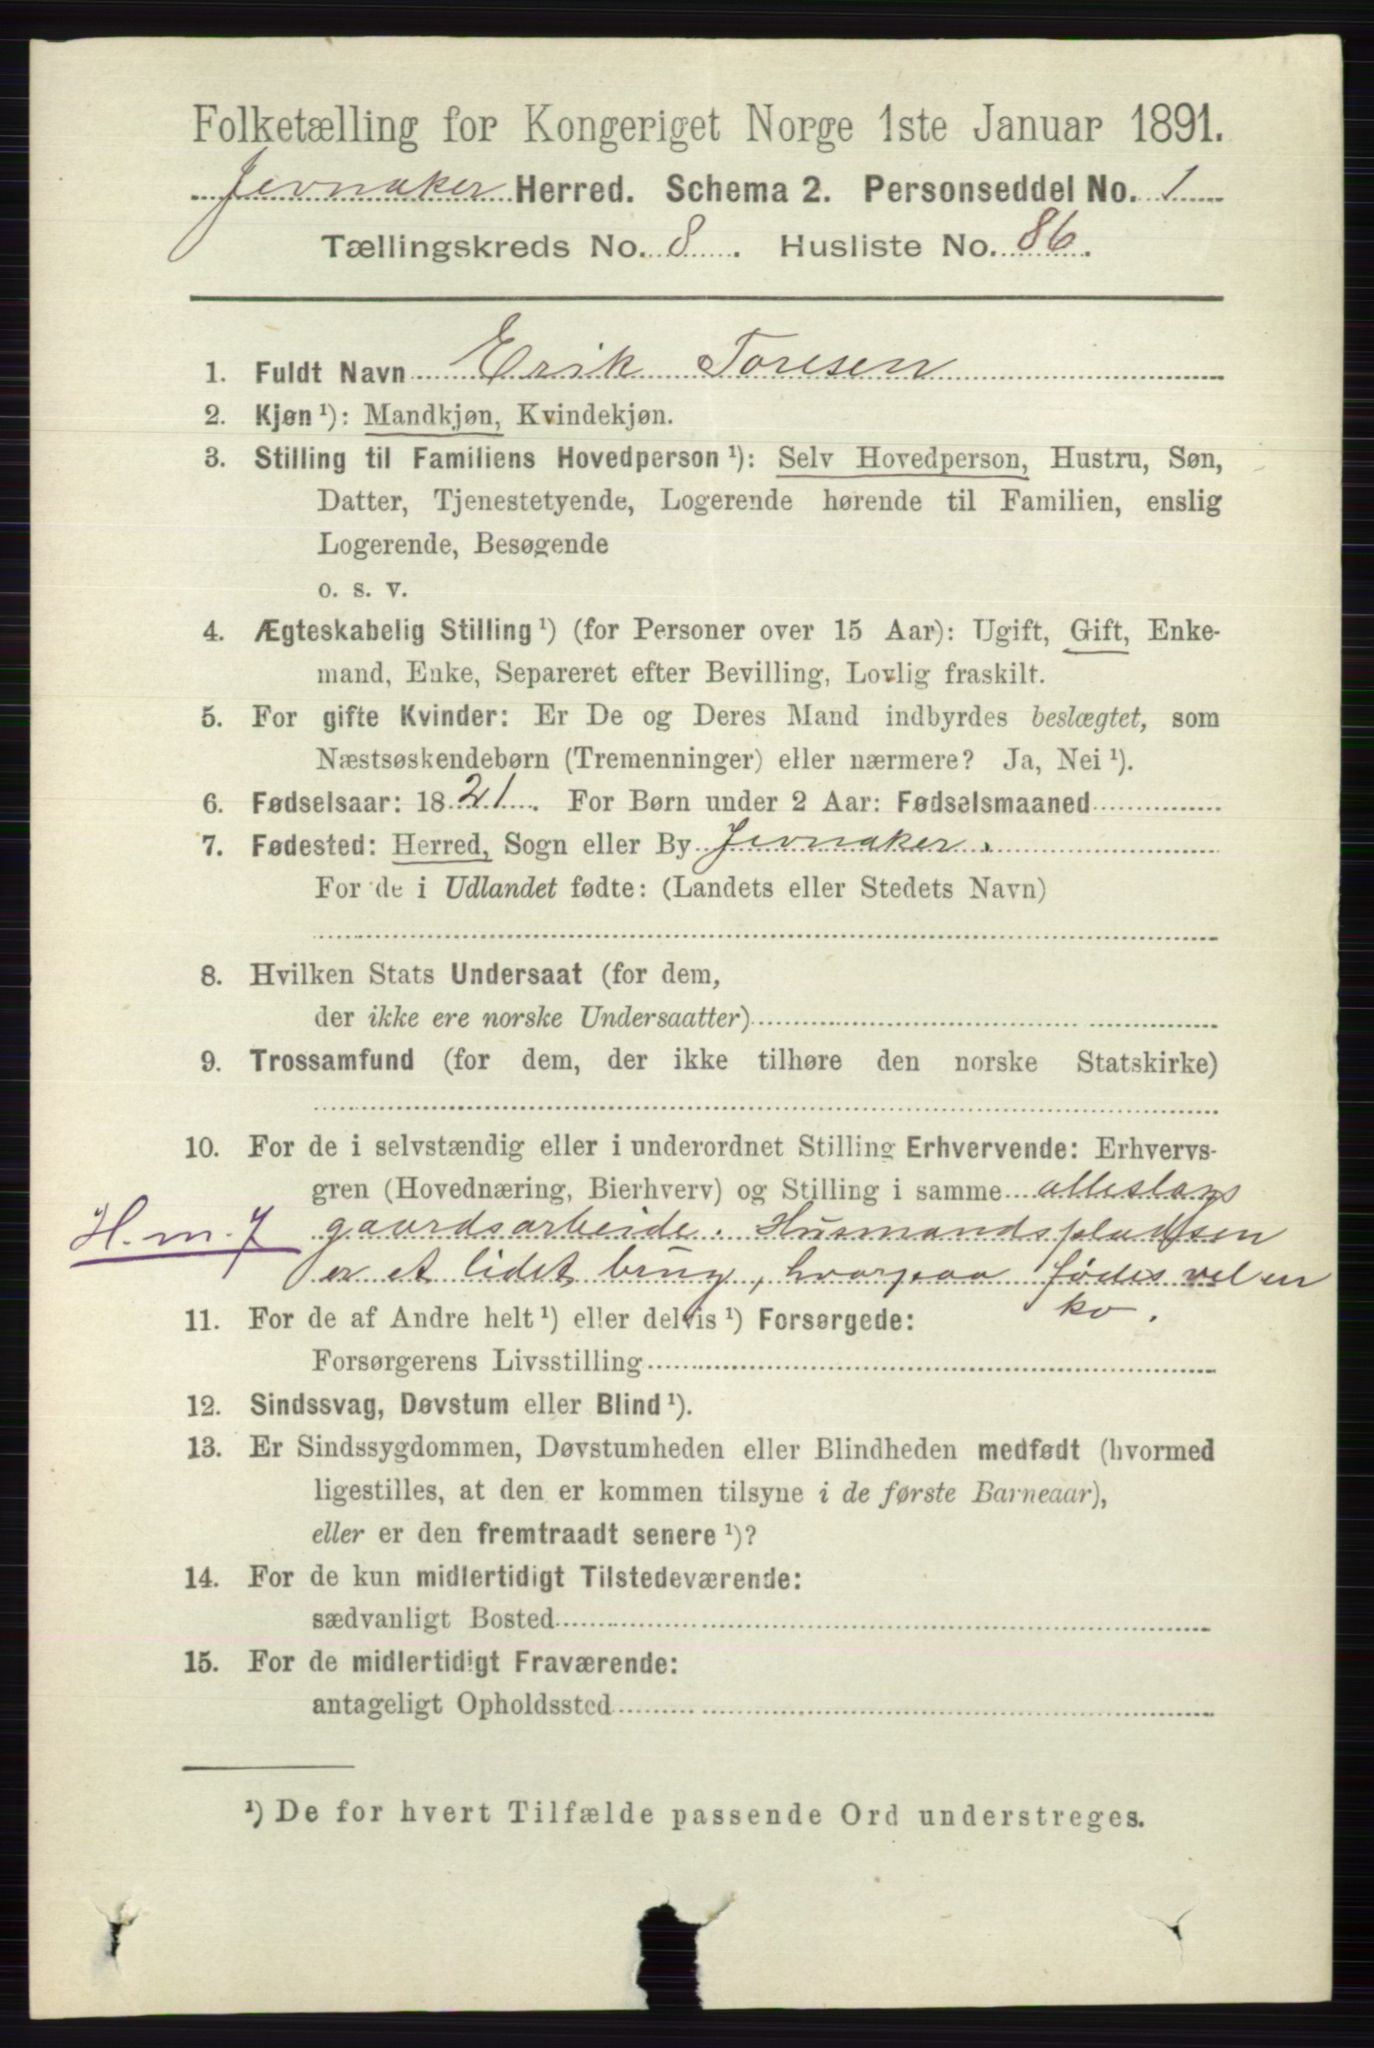 Folketælling for Kongeriget Norge 1ste Januar 1891.
Jevnaker Herred. Schema 2. Personseddel No. 1
Tællingskreds No. 8. Husliste No. 86.
1. Fuldt Navn Erik Toresen
2. Kjøn ¹): Mandkjøn, Kvindekjøn.
3. Stilling til Familiens Hovedperson ¹): Selv Hovedperson, Hustru, Søn,
Datter, Tjenestetyende, Logerende hørende til Familien, enslig
Logerende, Besøgende
o. s. v.
4. Ægteskabelig Stilling ¹) (for Personer over 15 Aar): Ugift, Gift, Enke-
mand, Enke, Separeret efter Bevilling, Lovlig fraskilt.
5. For gifte Kvinder: Er De og Deres Mand indbyrdes beslægtet, som
Næstsøskendebørn (Tremenninger) eller nærmere? Ja, Nei ¹).
6. Fødselsaar: 1821. For Børn under 2 Aar: Fødselsmaaned
7. Fødested: Herred, Sogn eller By Jevnaker.
For de i Udlandet fødte: (Landets eller Stedets Navn)
8. Hvilken Stats Undersaat (for dem,
der ikke ere norske Undersaatter)
9. Trossamfund (for dem, der ikke tilhøre den norske Statskirke)
10. For de i selvstændig eller i underordnet Stilling Erhvervende: Erhvervs-
gren (Hovednæring, Bierhverv) og Stilling i samme alleslags
H. m. J gaardsarbeide. Husmandspladsen
er et lidet brug, hvorpaa födes vel en
ko.
11. For de af Andre helt ¹) eller delvis ¹) Forsørgede:
Forsørgerens Livsstilling
12. Sindssvag, Døvstum eller Blind ¹).
13. Er Sindssygdommen, Døvstumheden eller Blindheden medfødt (hvormed
ligestilles, at den er kommen tilsyne i de første Barneaar),
eller er den fremtraadt senere ¹)?
14. For de kun midlertidigt Tilstedeværende:
sædvanligt Bosted
15. For de midlertidigt Fraværende:
antageligt Opholdssted
¹) De for hvert Tilfælde passende Ord understreges.